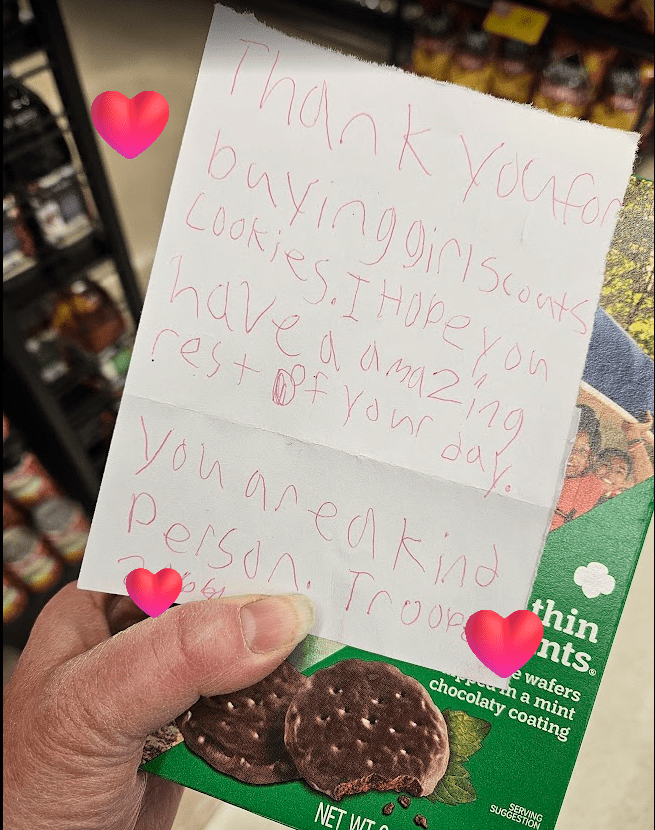 Thank you for
buying girl scouts
cookies. I Hope you
have a amazing
rest of your day.
You are a kind
Person. Troop
thin
nts®
e wafers
in a mint
chocolaty coating
SERVING
SUGGESTION
NET WT